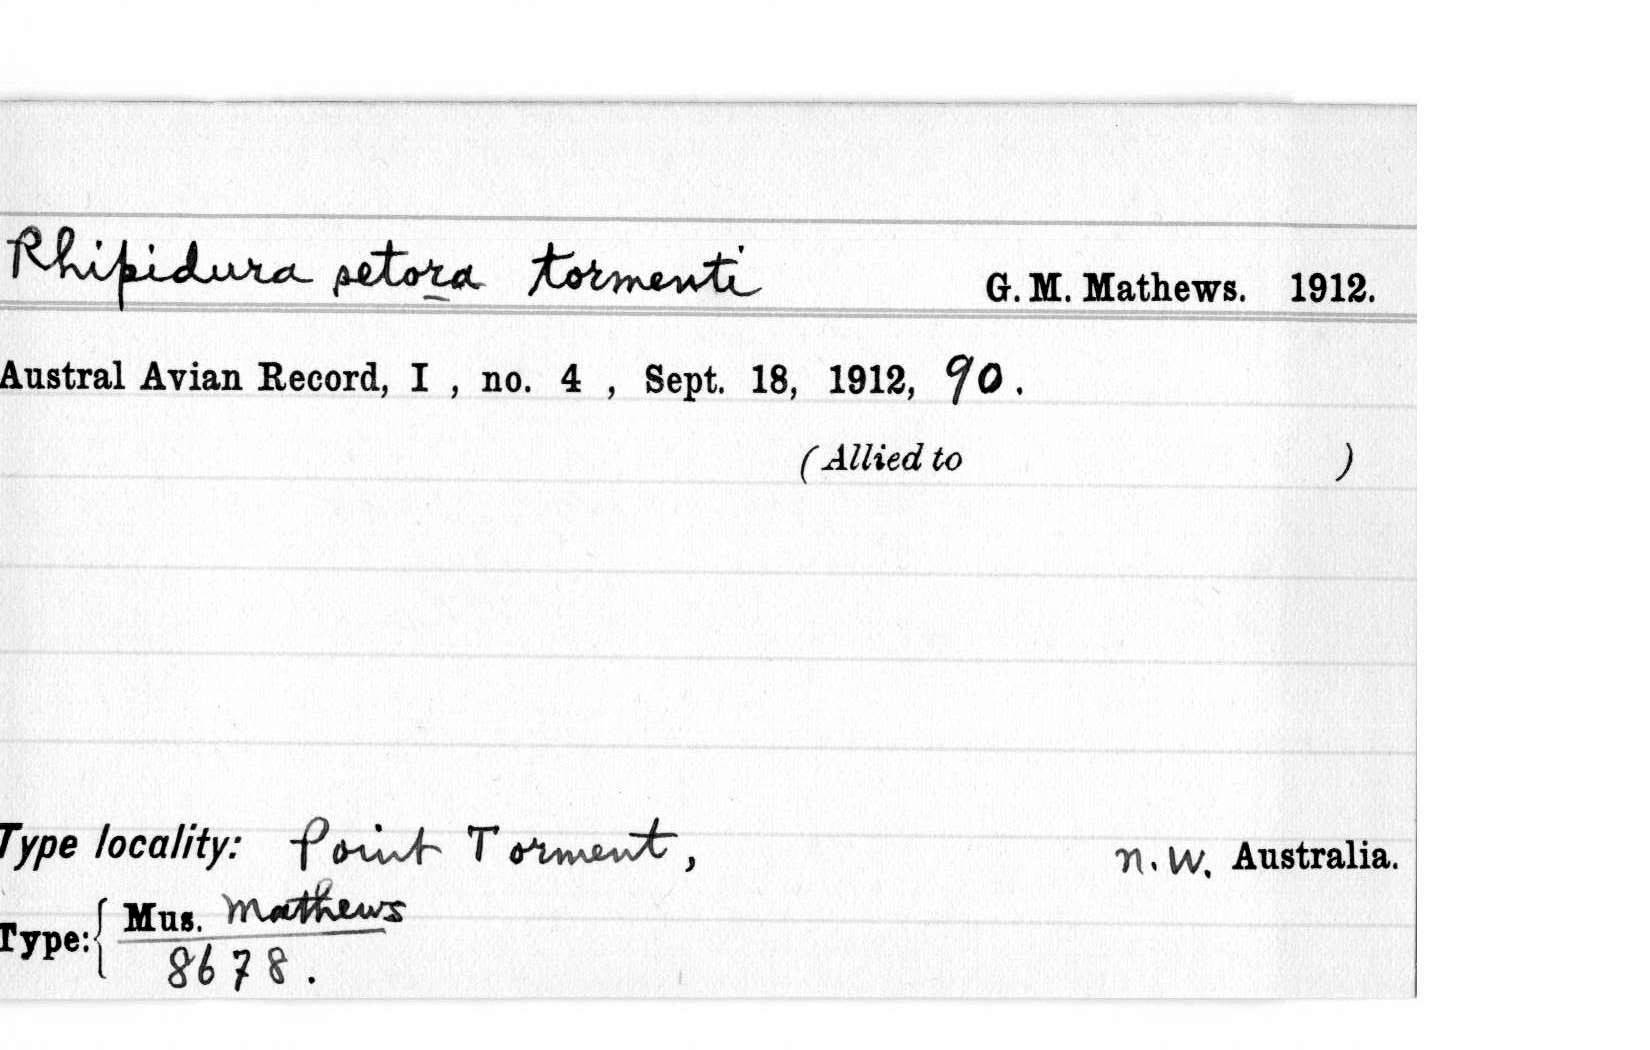 Rhipidura setora tormenti G. M. Mathews. 1912.
Austral Avian Record, I , no. 4 , Sept. 18, 1912, 90.
(Allied to )
Type locality: Point Torment, n.W. Australia.
Type: { Mus. Mathews
8678.